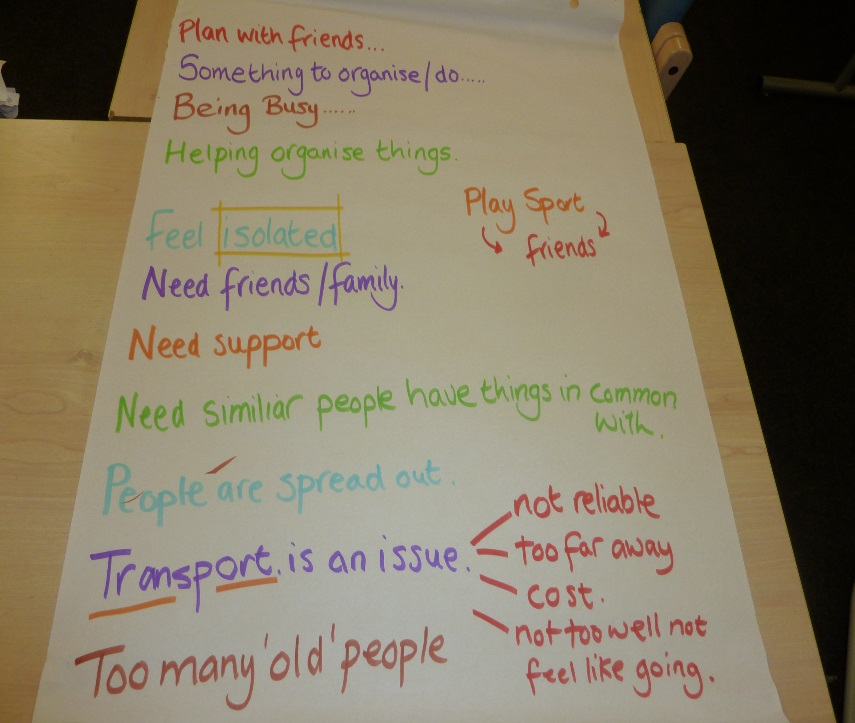 Plan with friends...
Something to organise/do.....
Being Busy......
Helping organise things.
Play Sport
friends
Feel isolated
Need friends/family.
Need support
Need similiar people have things in common
with.
People are spread out.
Transport. is an issue.
not reliable
too far away
cost.
not too well not
feel like going.
Too many 'old' people